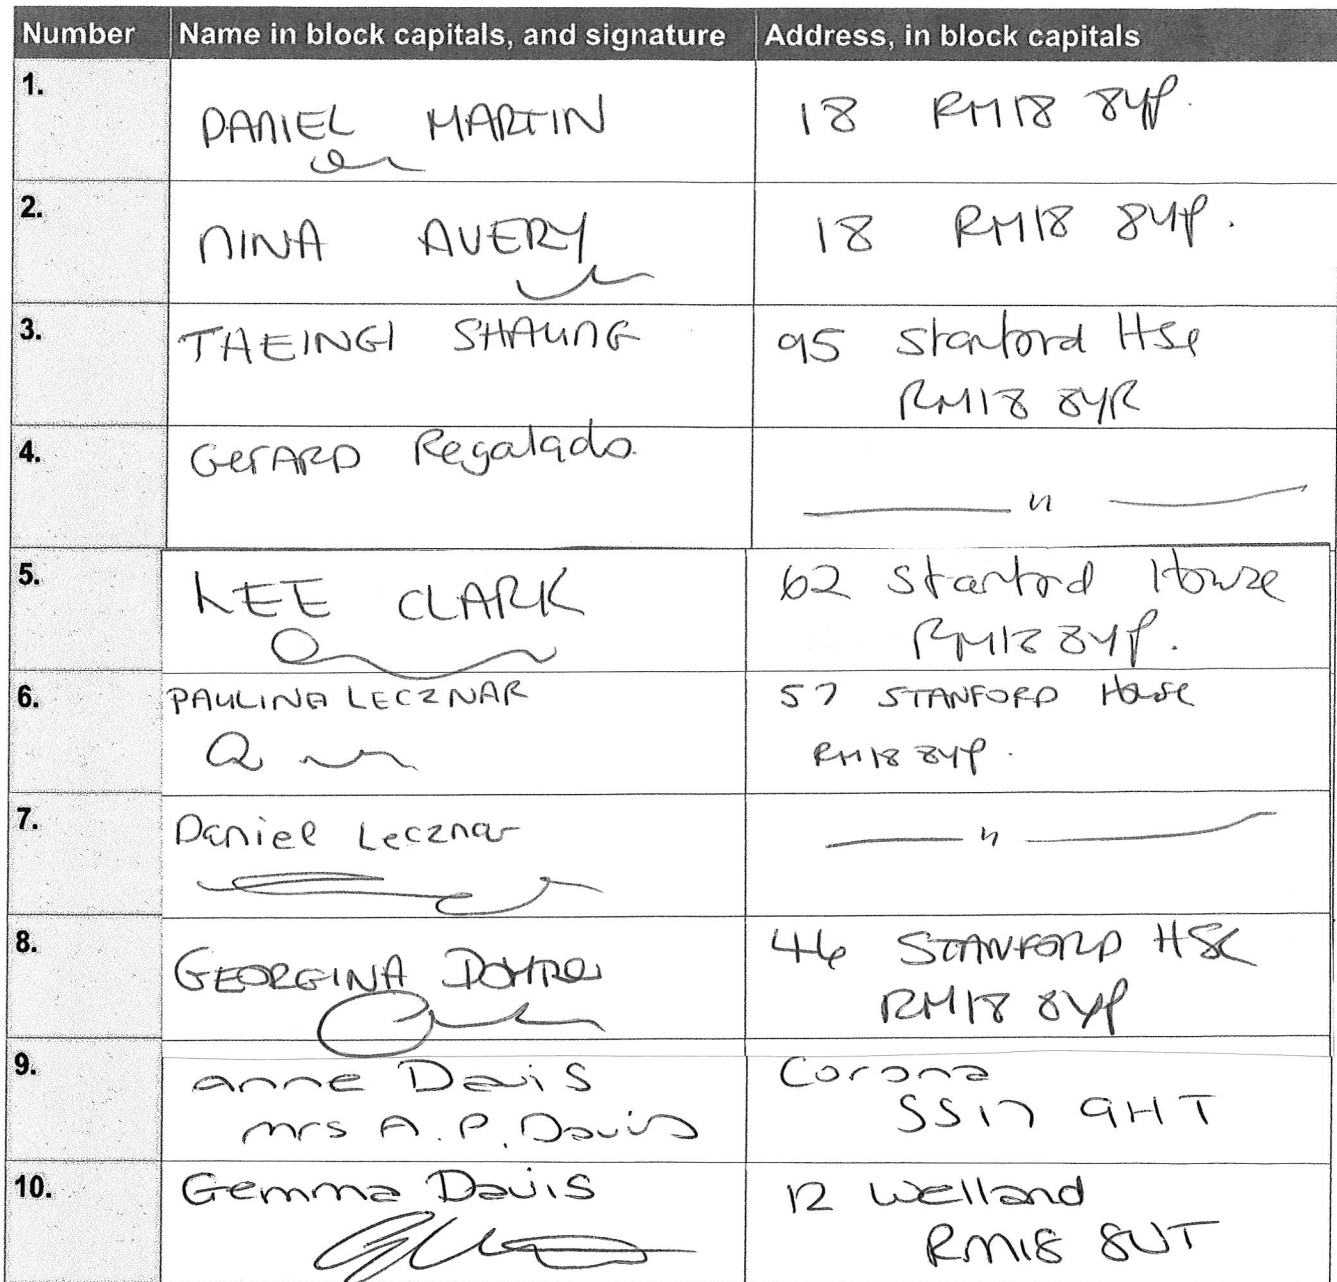 Number Name in block capitals, and signature Address, in block capitals
1. DANIEL MARTIN 18 RM18 8YP.
2. NINA AVERY 18 RM18 8YP.
3. TAEINGI SHAUNG 95 Stanford Hse
RM18 8YR
4. GerARD Regalado
—— " ——
5. LEE CLARK 62 Stanford House
RM18 8YP.
6. PAULINA LECZNAR 57 STANFORD House
RM18 8YP.
7. Daniel Lecznar —— " ——
8. GEORGINA 46 STANFORD HSE
RM18 8YP
9. anne Davis Corona
mrs A. P. Davis SS17 9HT
10. Gemma Davis 12 Welland
RM18 8UT